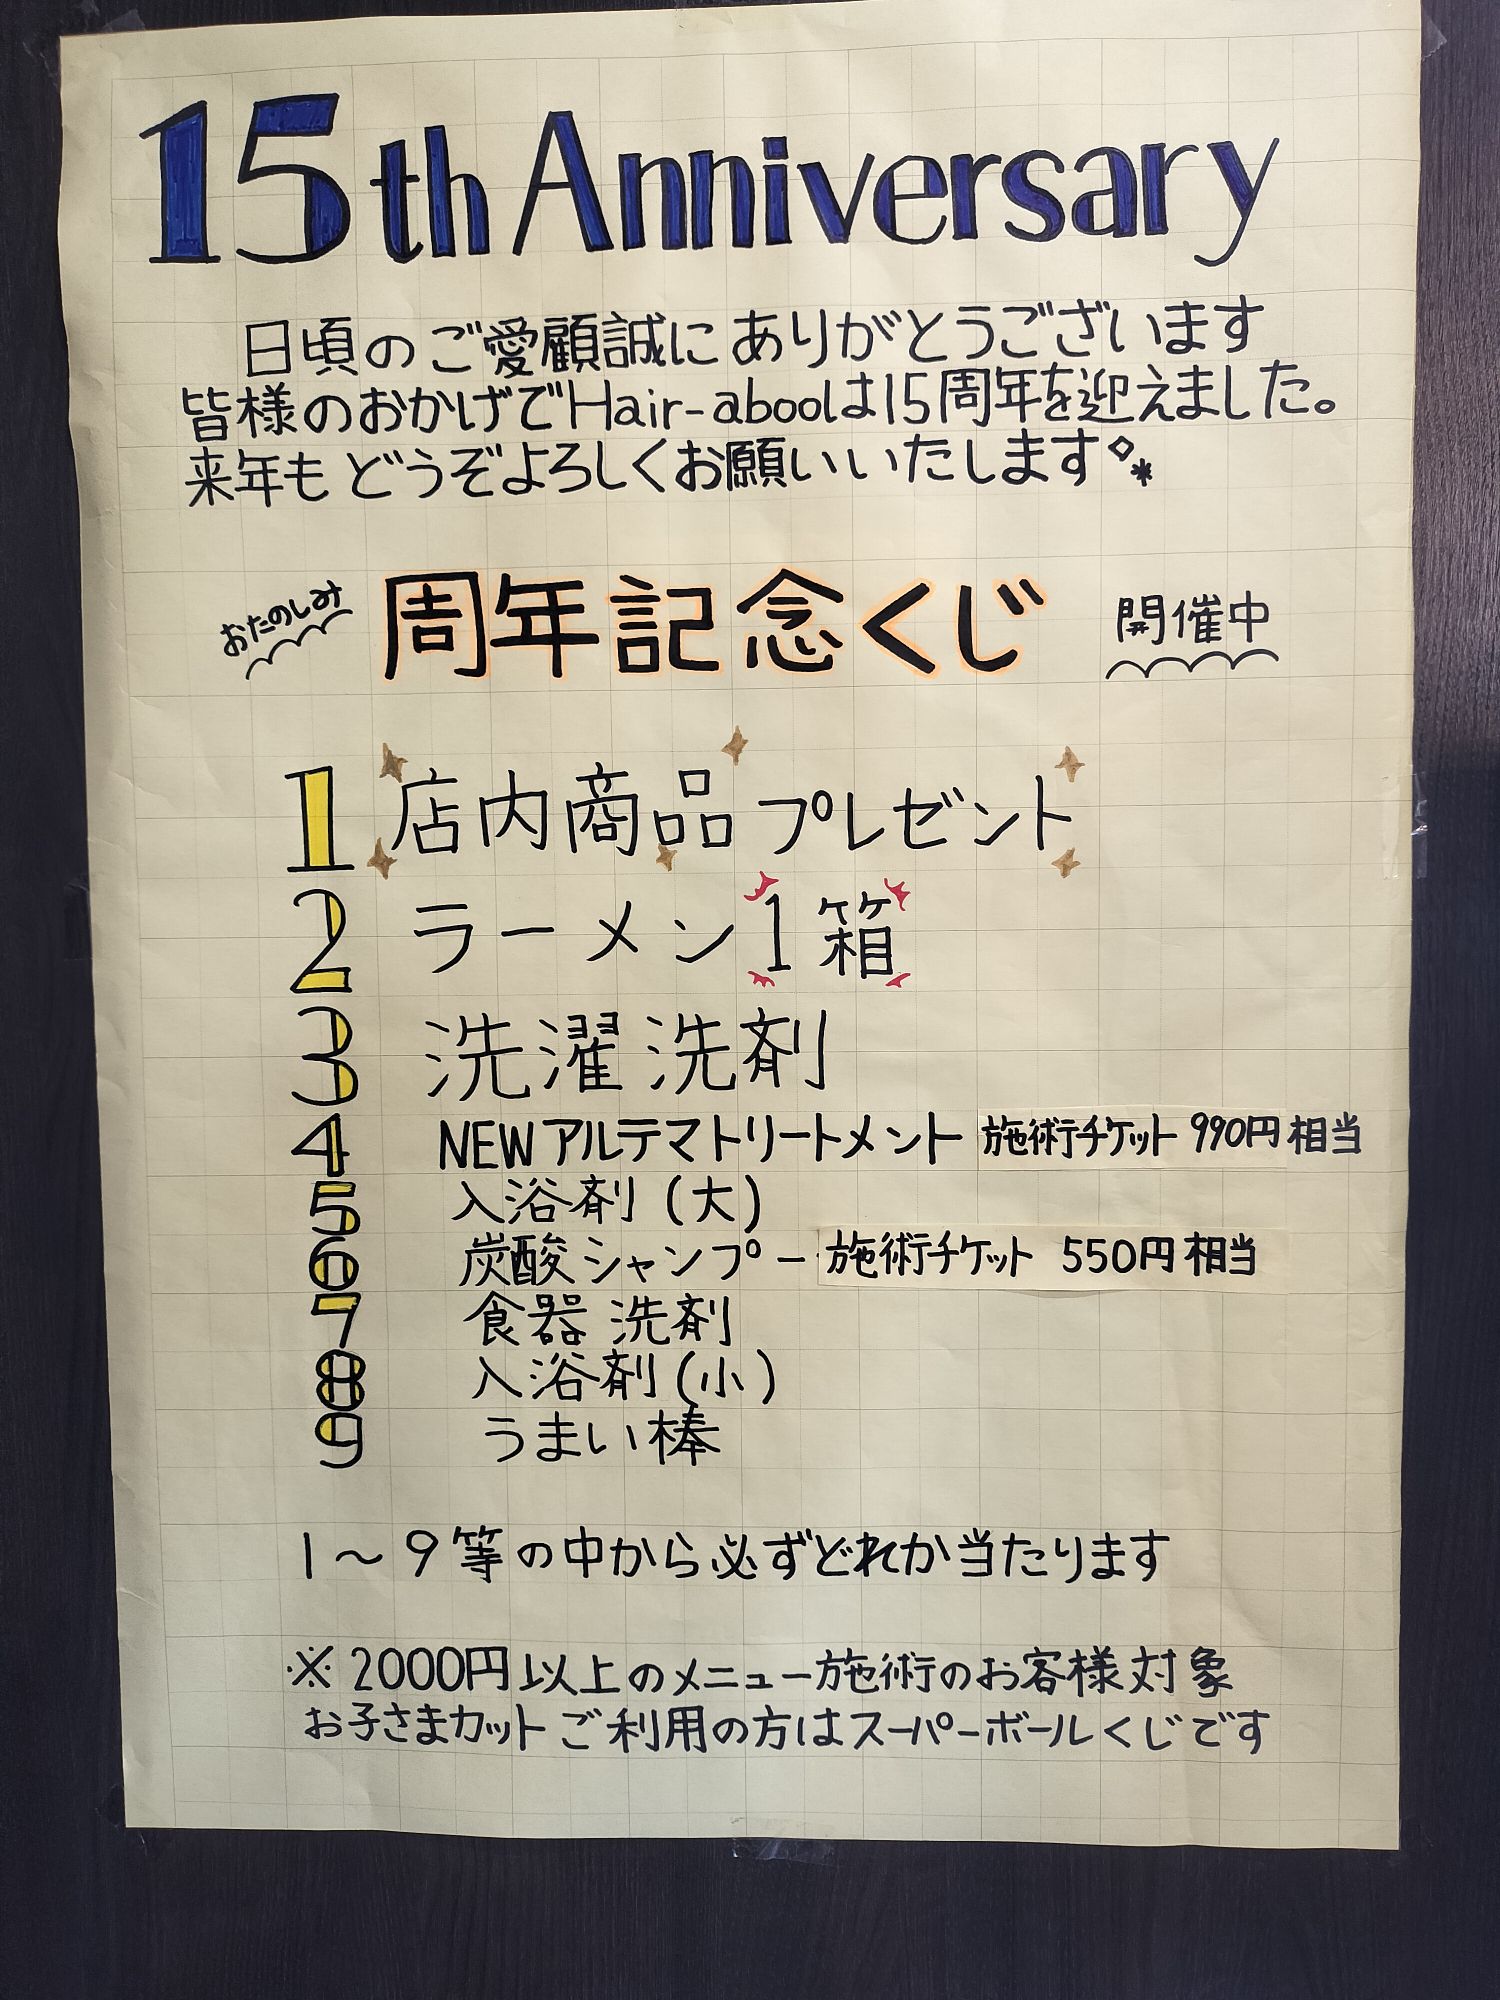 15th Anniversary
日頃のご愛顧誠にありがとうございます
皆様のおかげでHair-aboolは15周年を迎えました。
来年もどうぞよろしくお願いいたします
おたのしみ 周年記念くじ 開催中
1 店内商品プレゼント
2 ラーメン1箱
3 洗濯洗剤
4 NEWアルテマトリートメント 施術チケット 990円相当
5 入浴剤(大)
6 炭酸シャンプー 施術チケット 550円相当
7 食器洗剤
8 入浴剤(小)
9 うまい棒
1〜9等の中から必ずどれか当たります
※2000円以上のメニュー施術のお客様対象
お子さまカットご利用の方はスーパーボールくじです